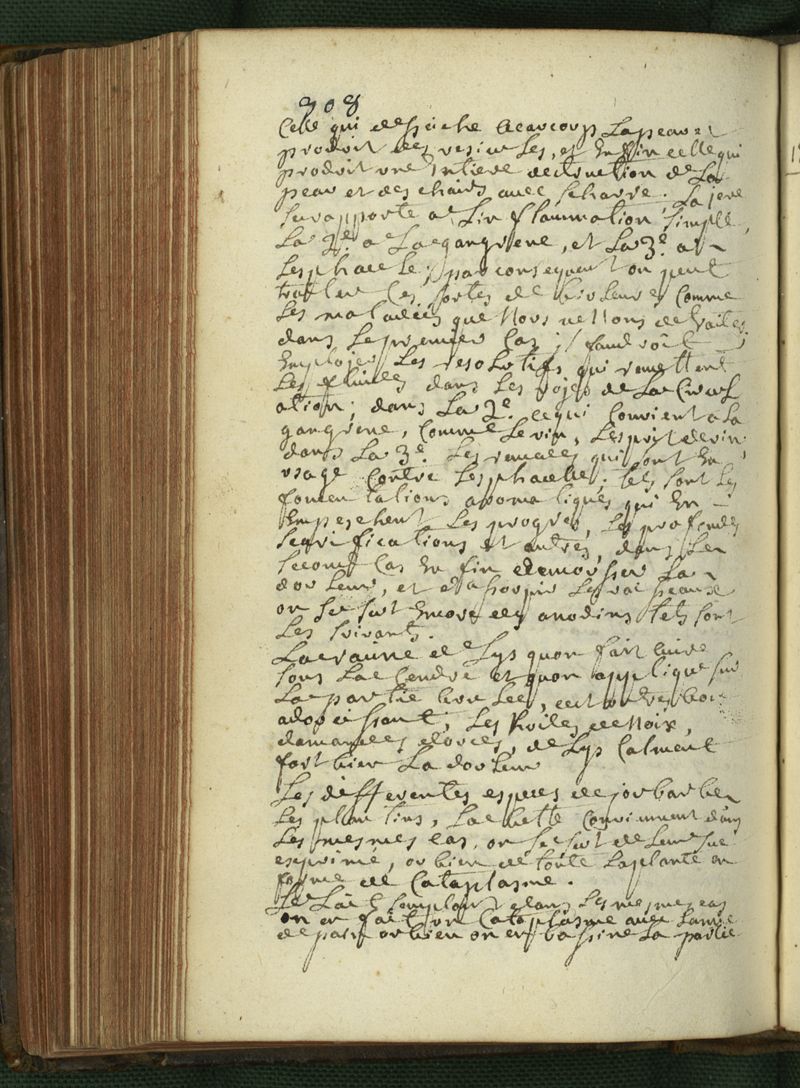 308
Celle qui desseiche beaucoup la peau et
produit des vesicules, et enfin celle qui
produit une entiere destruction de la
peau et des chairs avec scharre. La 1ere
se rapporte a l'inflammation simple,
La 2e. a la gangrene, et la 3e. au
sphacele; par consequent on peut
traitter ces sortes de bruleures comme
les maladies que nous venons de traiter
dans le premier cas il faudroit
employer les resolutifs qui remettent
les fluides dans les voyes de la circul
ation; dans la 2e. ce qui convient a la
gangrene, comme le vin, l'esprit de vin
dans la 3e. les remedes qui sont en
usage contre le sphacelle; tels sont les
fomentations aromatiques qui en
empeschent les progres, les profondes
scarifications et autres, dans le
second cas enfin demousser la
douleur, et d'assoupir les vaisseaux
on se sert encore des anodins tels sont
les suivants.
La racine de lys quon fait cuire
sous la cendre et quon applique sur
la partie brulée, est un tres bon
adoucissant, les huiles de noix,
damandes douces, de lys calment
fort bien la douleur
Les differentes especes de jorbarbe
les plantins, la bette conviennent dans
les mesmes cas, on se sert de leur suc
exprimé, ou bien de toute la plante en
forme de cataplasme.
Le lait s'employe dans les mesmes cas
on en fait un cataplasme avec la mie
de pain ou bien on en bassine la partie